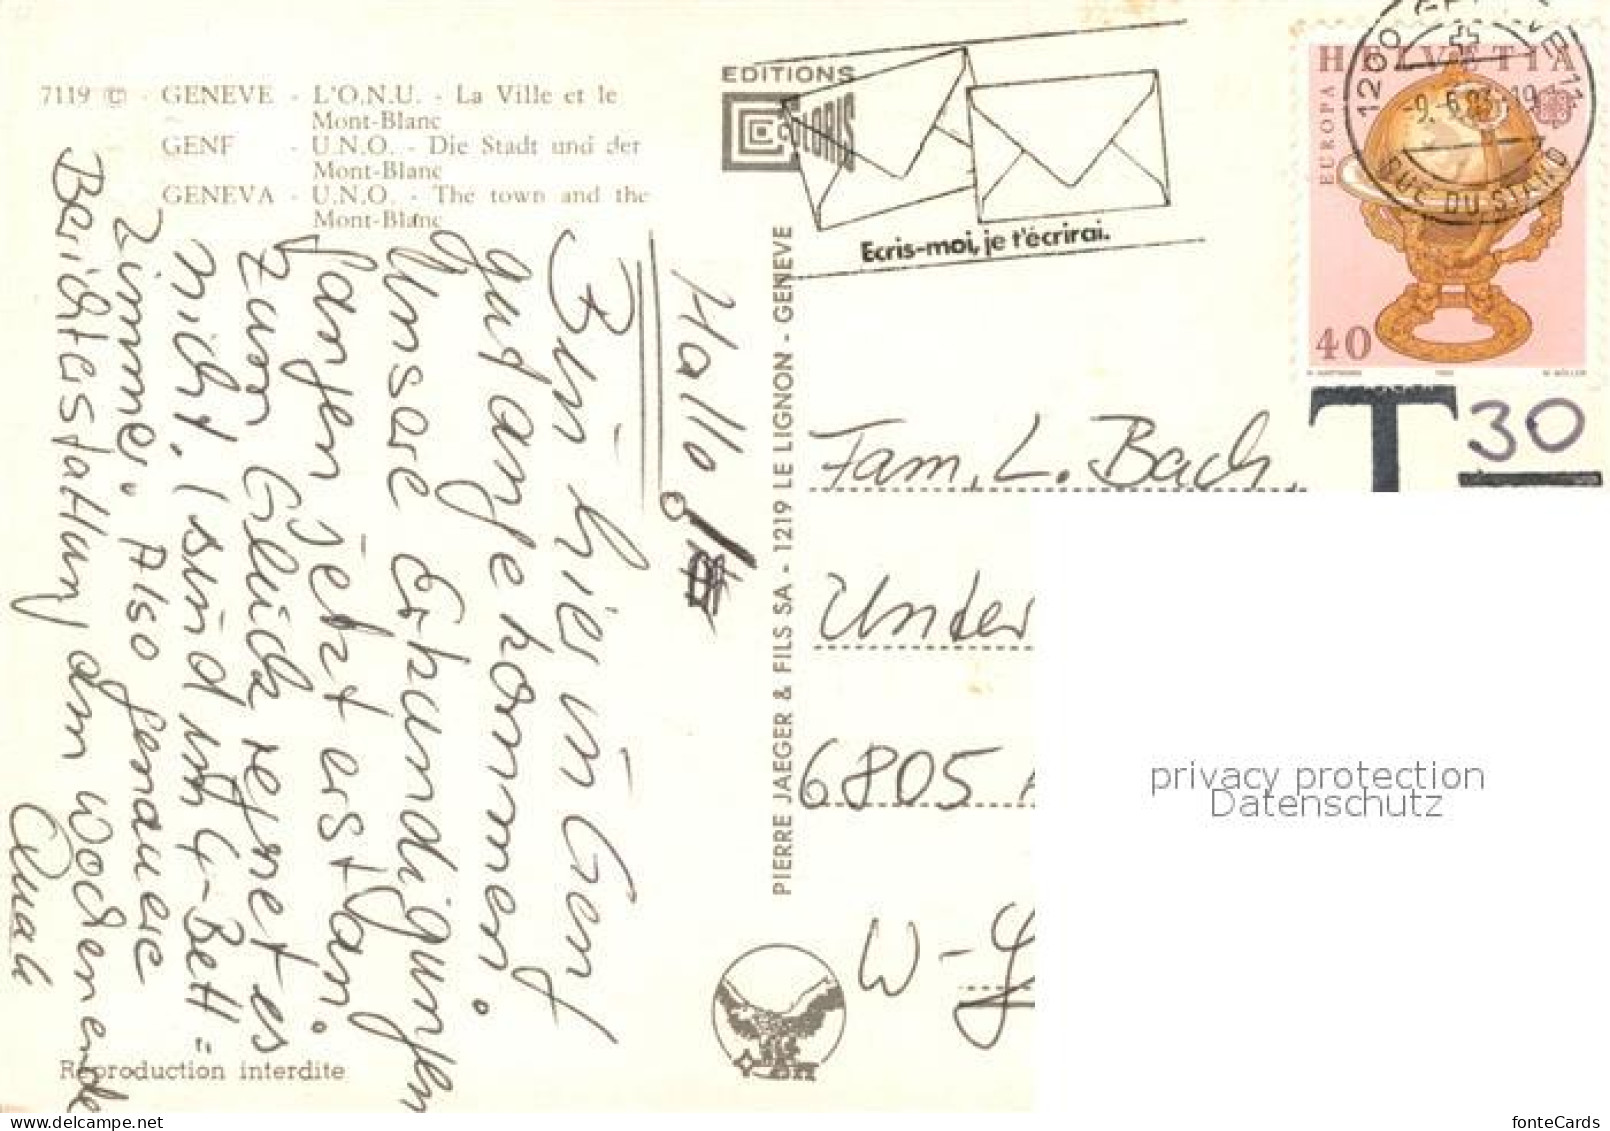 7119 © - GENEVE - L'O.N.U. - La Ville et le
Mont-Blanc
GENF - U.N.O. - Die Stadt und der
Mont-Blanc
GENEVA - U.N.O. - The town and the
Mont-Blanc
EDITIONS
COLORIS
Ecris-moi, je t'écrirai.
1200 GENEVE 11
-9.-6.83-19
RUE DU STAND
HELVETIA
EUROPA
40
T 30
Hallo!
Bin hier in Genf
gut angekommen.
Unsere Erkundigungen
fangen jetzt erst an.
Zum Glück regnet es
nicht. (sind im 4-Bett-
Zimmer". Also genauere
Berichterstattung am Wochenende
PIERRE JAEGER & FILS SA - 1219 LE LIGNON - GENEVE
Fam. L. Bach
Unter
6805
W-G
Reproduction interdite
privacy protection
Datenschutz
fonteCards